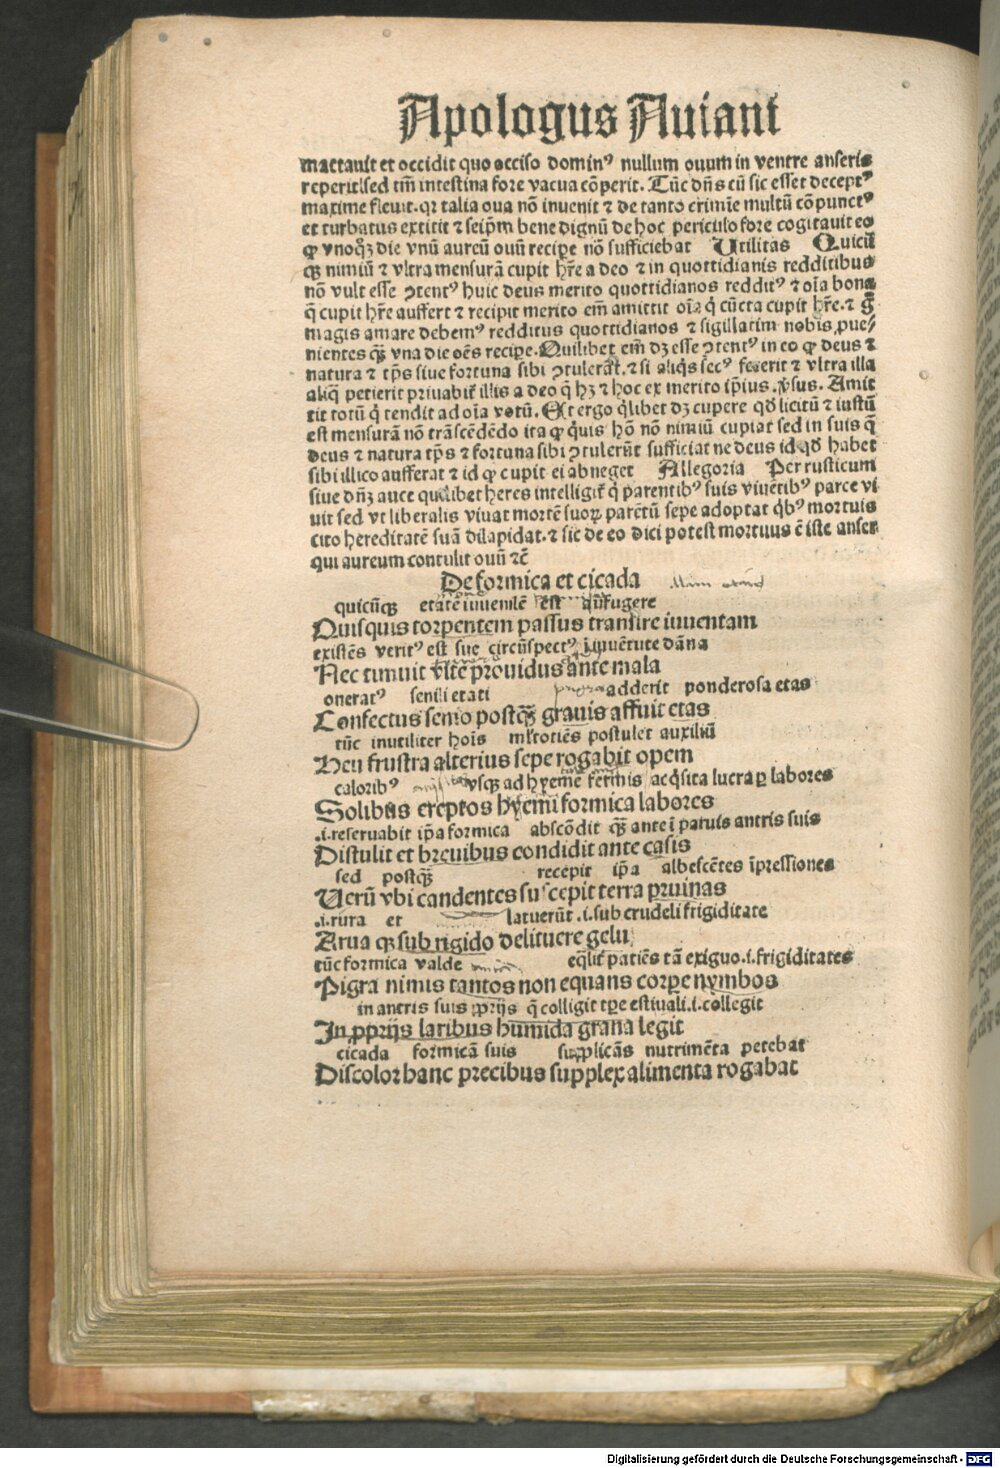 Apologus Auiani
mactauit et occidit quo occiso dominꝰ nullum ouum in ventre anseris
reperit sed tm̄ intestina fore vacua cōperit. Tūc dn̄s cū sic esset deceptꝰ
maxime fleuit. qꝛ talia oua nō inuenit ⁊ de tanto crimīe multū cōpunctꝰ
et turbatus extitit ⁊ seip̄m bene dignū de hoc periculo fore cogitauit eo
ꝙ vnoqꝫ die vnū aureū ouū recipe nō sufficiebat Utilitas Quicū
qꝫ nimiū ⁊ vltra mensurā cupit hr̄e a deo ⁊ in quottidianis redditibus
nō vult esse ꝯtentꝰ huic deus merito quottidianos redditꝰ ⁊ oīa bona
q̄ cupit hr̄e auffert ⁊ recipit merito em̄ amittit oīa q̇ cūcta cupit hr̄e. ⁊ g̊
magis amare debemꝰ redditus quottidianos ⁊ sigillatim nobis ꝓue/
nientes qꝫ vna die oēs recipe. Quilibet em̄ dꝫ esse ꝯtentꝰ in eo ꝙ deus ⁊
natura ⁊ tp̄s siue fortuna sibi ꝯtulerāt. ⁊ si aliq̇s secꝰ fecerit ⁊ vltra illa
aliq̄ petierit priuabit̄ illis a deo q̄ hꝫ ⁊ hoc ex merito ip̄ius. v̄sus. Amit
tit totū q̇ tendit ad oīa votū. Et ergo q̇libet dꝫ cupere qd̄ licitū ⁊ iustū
est mensurā nō trāscēdēdo ita ꝙ q̇uis hō nō nimiū cupiat sed in suis q̄
deus ⁊ natura tp̄s ⁊ fortuna sibi ꝯtulerūt sufficiat ne deus id qd̄ habet
sibi illico aufferat ⁊ id ꝙ cupit ei abneget Allegoria Per rusticum
siue dn̄ꝫ auce quilibet heres intelligit̄ q̇ parentibꝰ suis viuētibꝰ parce vi
uit sed vt liberalis viuat mortē suoꝝ parētū sepe adoptat q̇bꝰ mortuis
cito hereditatē suā dilapidat. ⁊ sic de eo dici potest mortuus ē iste anser
qui aureum contulit ouū ⁊c̄
De formica et cicada
quicūqꝫ etatē iuuenilē est aufugere
Quisquis torpentem passus transire iuuentam
existēs veritꝰ est sue circūspectꝰ i iuuētute dāna
Nec timuit vite prouidus ante mala
oneratꝰ senili etati adderit ponderosa etas
Confectus senio postqꝫ grauis affuit etas
tūc inutiliter hois ml̄totiēs postulet auxiliū
Heu frustra alterius sepe rogabit opem
caloribꝰ vsqꝫ ad hyemē fermis acq̇sita lucra ꝑ labores
Solibus ereptos hyemi formica labores
.i. reseruabit ip̄a formica abscōdit qꝫ ante ī paruis antris suis
Distulit et breuibus condidit ante casis
sed postqꝫ recepit ip̄a albescētes īpressiones
Uerū vbi candentes suscepit terra pruinas
.i. rura et latuerūt .i. sub crudeli frigiditate
Arua qꝫ sub rigido delituere gelu
tūc formica valde eq̄lit̄ patiēs tā exiguo .i. frigiditates
Pigra nimis tantos non equans corpe nymbos
in antris suis ꝓprijs q̄ colligit tꝑe estiuali .i. collegit
In ꝓprijs laribus humida grana legit
cicada formicā suis supplicās nutrimēta petebat
Discolor hanc precibus supplex alimenta rogabat
Digitalisierung gefördert durch die Deutsche Forschungsgemeinschaft - DFG